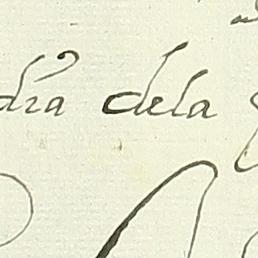 dra dela